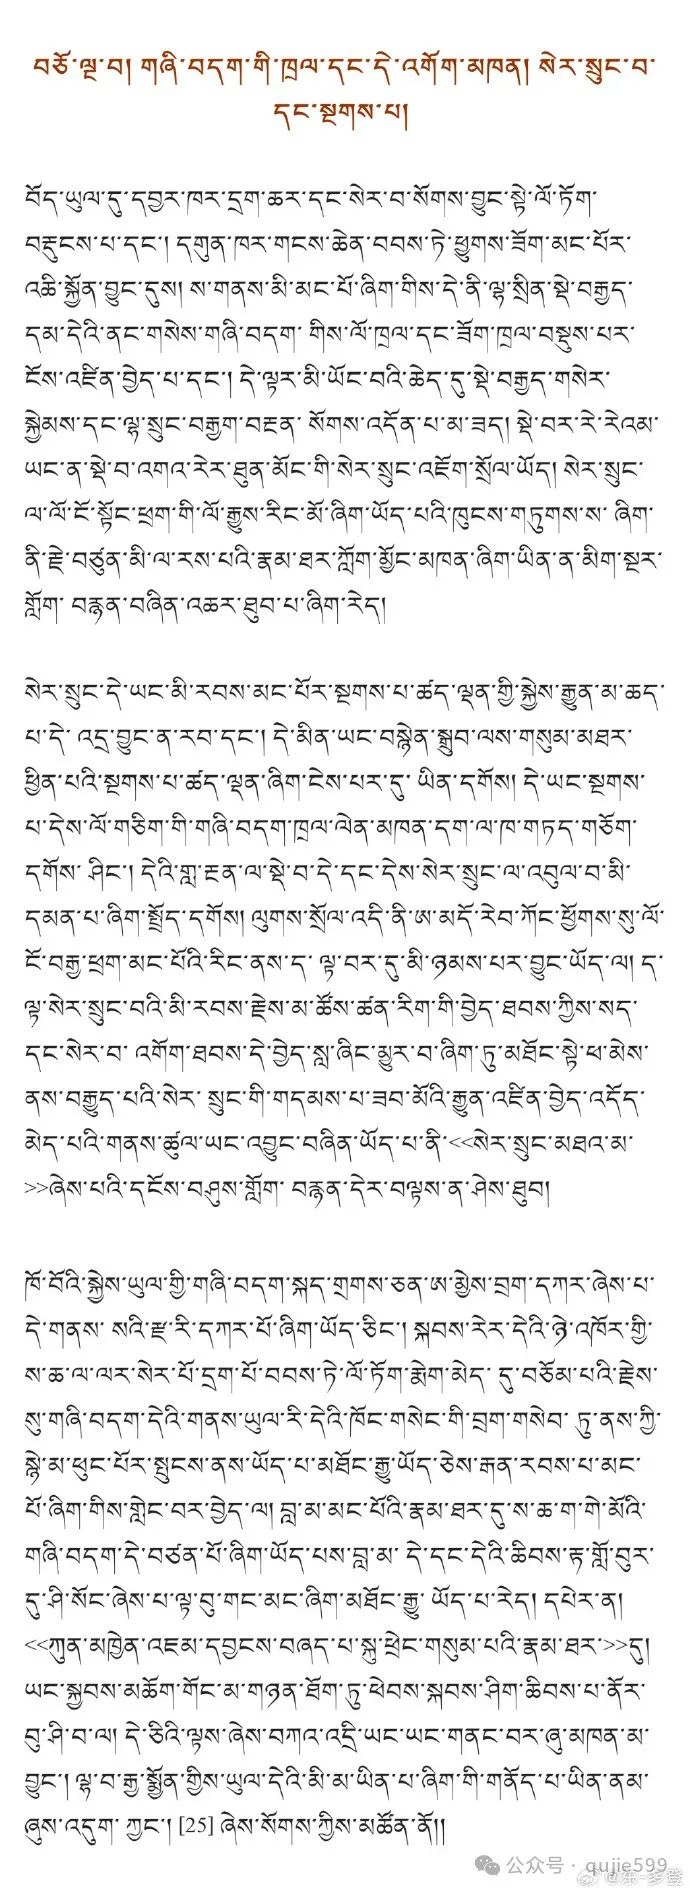 བཅོ་ལྔ་བ། གཞི་བདག་གི་ཁྲལ་དང་དེ་འགོག་མཁན། སེར་སྲུང་བ་
དང་སྔགས་པ།
བོད་ཡུལ་དུ་དབྱར་ཁར་དྲག་ཆར་དང་སེར་བ་སོགས་བྱུང་སྟེ་ལོ་ཏོག་
བརྡུངས་པ་དང་། དགུན་ཁར་གངས་ཆེན་བབས་ཏེ་ཕྱུགས་ཟོག་མང་པོར་
འཆི་སྐྱོན་བྱུང་དུས། ས་གནས་མི་མང་པོ་ཞིག་གིས་དེ་ནི་ལྷ་སྲིན་སྡེ་བརྒྱད་
དམ་དེའི་ནང་གསེས་གཞི་བདག་ གིས་ལོ་ཁྲལ་དང་ཟོག་ཁྲལ་བསྡུས་པར་
ངོས་འཛིན་བྱེད་པ་དང་། དེ་ལྟར་མི་ཡོང་བའི་ཆེད་དུ་སྡེ་བརྒྱད་གསེར་
སྐྱེམས་དང་ལྷ་སྲུང་བརྒྱག་བརྔན་ སོགས་འདོན་པ་མ་ཟད། སྡེ་བར་རེ་རེའམ་
ཡང་ན་སྡེ་བ་འགའ་རེར་ཐུན་མོང་གི་སེར་སྲུང་འཇོག་སྲོལ་ཡོད། སེར་སྲུང་
ལ་ལོ་ངོ་སྟོང་ཕྲག་གི་ལོ་རྒྱུས་རིང་མོ་ཞིག་ཡོད་པའི་ཁུངས་གཏུགས་ས་ ཞིག་
ནི་རྗེ་བཙུན་མི་ལ་རས་པའི་རྣམ་ཐར་ཀློག་མྱོང་མཁན་ཞིག་ཡིན་ན་མིག་སྔར་
གློག་ བརྙན་བཞིན་འཆར་ཐུབ་པ་ཞིག་རེད།
སེར་སྲུང་དེ་ཡང་མི་རབས་མང་པོར་སྔགས་པ་ཚད་ལྡན་གྱི་སྐྱེས་རྒྱུན་མ་ཆད་
པ་དེ་ འདྲ་བྱུང་ན་རབ་དང་། དེ་མིན་ཡང་བསྙེན་སྒྲུབ་ལས་གསུམ་མཐར་
ཕྱིན་པའི་སྔགས་པ་ཚད་ལྡན་ཞིག་ངེས་པར་དུ་ ཡིན་དགོས། དེ་ཡང་སྔགས་
པ་དེས་ལོ་གཅིག་གི་གཞི་བདག་ཁྲལ་ལེན་མཁན་དག་ལ་ཁ་གཏད་གཅོག་
དགོས་ ཤིང་། དེའི་གླ་རྔན་ལ་སྡེ་བ་དེ་དང་དེས་སེར་སྲུང་ལ་འབུལ་བ་མི་
དམན་པ་ཞིག་སྤྲོད་དགོས། ལུགས་སྲོལ་འདི་ནི་ཨ་མདོ་རེབ་ཀོང་ཕྱོགས་སུ་ལོ་
ངོ་བརྒྱ་ཕྲག་མང་པོའི་རིང་ནས་ད་ ལྟ་བར་དུ་མི་ཉམས་པར་བྱུང་ཡོད་ལ། ད་
ལྟ་སེར་སྲུང་བའི་མི་རབས་རྗེས་མ་ཚོས་ཚན་རིག་གི་བྱེད་ཐབས་ཀྱིས་སད་
དང་སེར་བ་ འགོག་ཐབས་དེ་བྱེད་སླ་ཞིང་མྱུར་བ་ཞིག་ཏུ་མཐོང་སྟེ་ཕ་མེས་
ནས་བརྒྱུད་པའི་སེར་ སྲུང་གི་གདམས་པ་ཟབ་མོའི་རྒྱུན་འཛིན་བྱེད་འདོད་
མེད་པའི་གནས་ཚུལ་ཡང་འབྱུང་བཞིན་ཡོད་པ་ནི་<<སེར་སྲུང་མཐའ་མ་
>>ཞེས་པའི་དངོས་བཤུས་གློག་ བརྙན་དེར་བལྟས་ན་ཤེས་ཐུབ།
ཁོ་བོའི་སྐྱེས་ཡུལ་གྱི་གཞི་བདག་སྐད་གྲགས་ཅན་ཨ་མྱེས་བྲག་དཀར་ཞེས་པ་
དེ་གནས་ སའི་རྫ་རི་དཀར་པོ་ཞིག་ཡོད་ཅིང་། སྐབས་རེར་དེའི་ཉེ་འཁོར་གྱི་
ས་ཆ་ལ་ལར་སེར་པོ་དྲག་པོ་བབས་ཏེ་ལོ་ཏོག་རྨེག་མེད་ དུ་བཅོམ་པའི་རྗེས་
སུ་གཞི་བདག་དེའི་གནས་ཡུལ་རི་དེའི་ཁོང་གསེང་གི་བྲག་གསེབ་ ཏུ་ནས་ཀྱི་
སྙེ་མ་ཕུང་པོར་སྤུངས་ནས་ཡོད་པ་མཐོང་རྒྱུ་ཡོད་ཅེས་རྒན་རབས་པ་མང་
པོ་ཞིག་གིས་གླེང་བར་བྱེད་ལ། བླ་མ་མང་པོའི་རྣམ་ཐར་དུ་ས་ཆ་ག་གེ་མོའི་
གཞི་བདག་དེ་བཙན་པོ་ཞིག་ཡོད་པས་བླ་མ་ དེ་དང་དེའི་ཆིབས་རྟ་གློ་བུར་
དུ་ཤི་སོང་ཞེས་པ་ལྟ་བུ་གང་མང་ཞིག་མཐོང་རྒྱུ་ ཡོད་པ་རེད། དཔེར་ན།
<<ཀུན་མཁྱེན་འཇམ་དབྱངས་བཞད་པ་སྐུ་ཕྲེང་གསུམ་པའི་རྣམ་ཐར་>>དུ།
ཡང་སྐྱབས་མཆོག་གོང་མ་གཉན་ཐོག་ཏུ་ཕེབས་སྐབས་ཤིག་ཆིབས་པ་ནོར་
བུ་ཤི་བ་ལ། དེ་ཅིའི་ལྟས་ཞེས་བཀའ་འདྲི་ཡང་ཡང་གནང་བར་ཞུ་མཁན་མ་
བྱུང་། ལྷ་བ་རྒྱ་སྨྱོན་གྱིས་ཡུལ་དེའི་མི་མ་ཡིན་པ་ཞིག་གི་གནོད་པ་ཡིན་ནམ་
ཞུས་འདུག་ ཀྱང་། [25] ཞེས་སོགས་ཀྱིས་མཚོན་ནོ།།
公众号 · qujie599
@东-多登